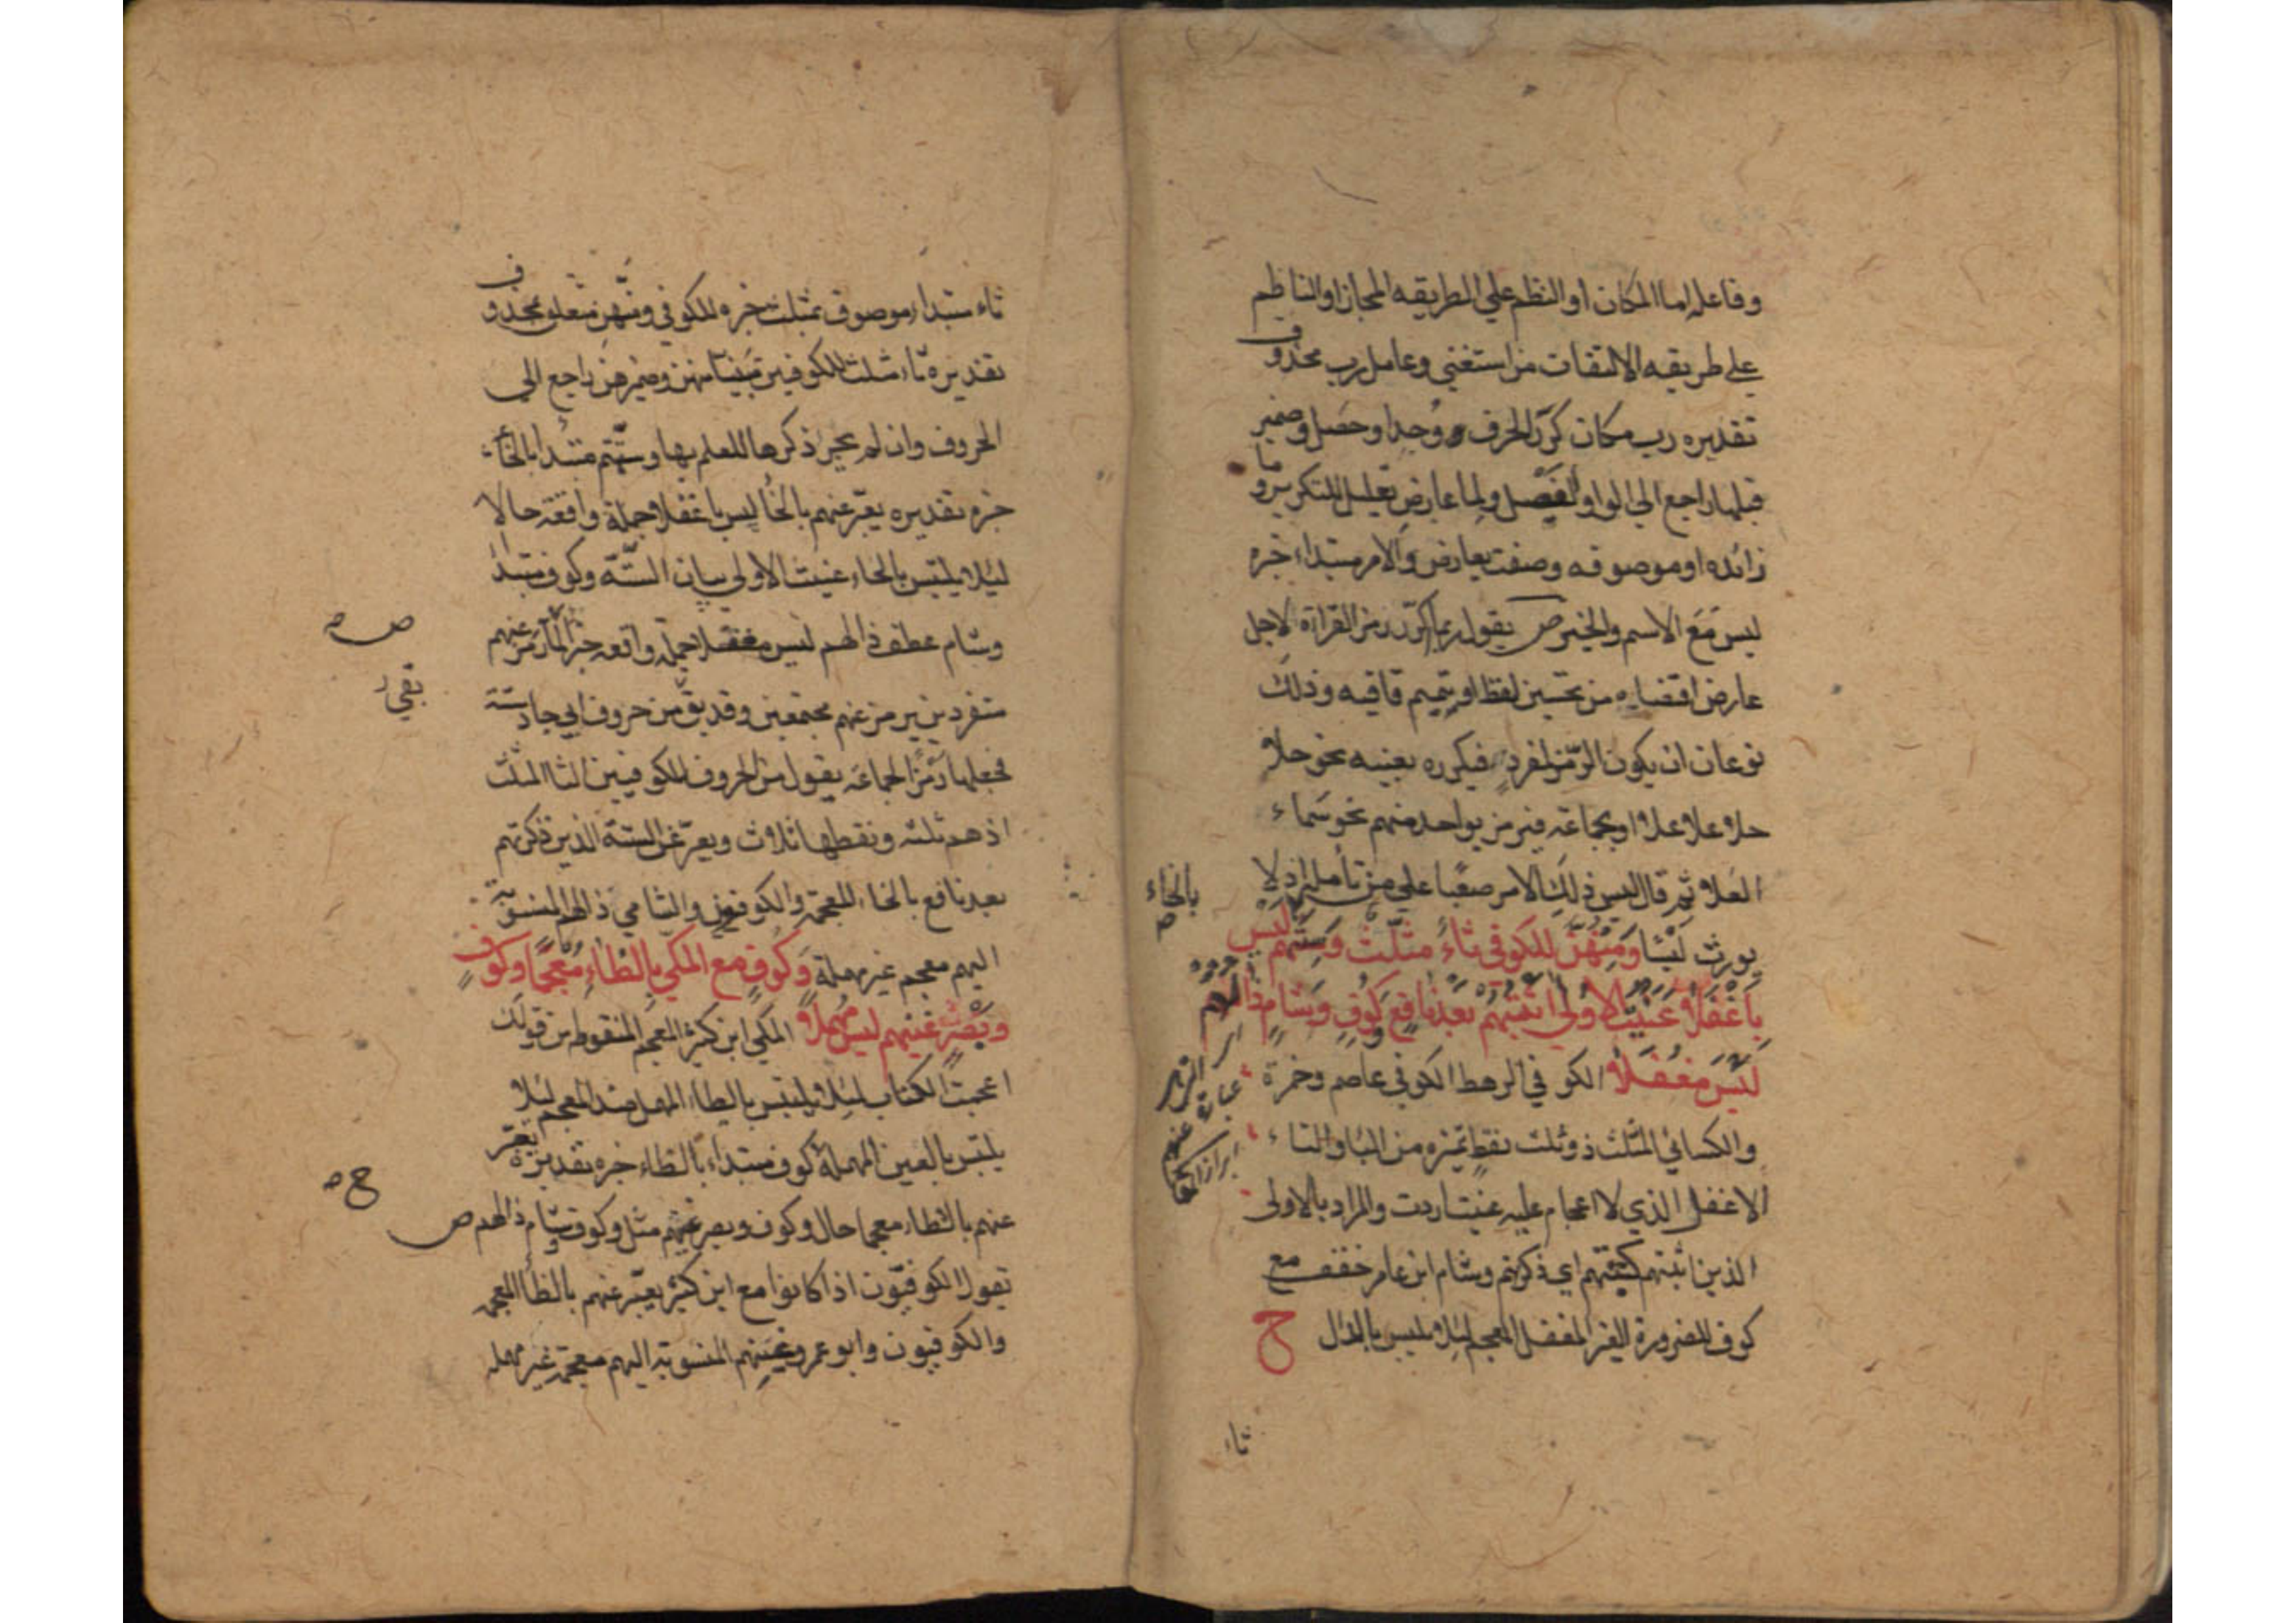 وفاعله اما المكان او النظم علي الطريقه المجاز او الناظم
علي طريقه الالتفات من استغني وعامل رب محذوف
تقديره رب مكان كرّر الحرف ووُجدا وحصل وضمير
قبلها راجع الي الواو الفيصل ولما عارض تعليل للتكرير وما
زائده او موصوفه وصفت بعارض والامر مبتداء خبره
ليس مع الاسم والخبر ص يقول ربما كرّر رمز القراءة لاجل
عارض اقتضاه من تحسين لفظ او تتميم قافيه وذلك
نوعان ان يكون الرّمز لمفرد فيكرره بعينه نحو حلا
حلا علا علا او بجماعة فيرمز بواحد منهم نحو سماء
العلا ثم قال ليس ذلك الامر صعبا علي من تأمله اذ لا
يورث لبسا ومنهن للكوفي ثاء مثلث وستهم بالخاء ليس
باغفلا عنيت الاولي اثبتهم بعد نافع كوف وشام ذالهم
ليس مغفلا الكوفي الرهط الكوفي عاصم وحمزة
والكسائي المثلث ذو ثلث نقط تميزه من الباء والتاء
الاغفل الذي لا اعجام عليه عنيت اردت والمراد بالاولى
الذين اثبتهم كتبتهم اي ذكرتهم وشام ابن عامر خفف مع
كوف للضرورة الغير المغفل المعجم ليلا يلبس بالدال ح
ثاء
ثاء مبتداء موصوف بمثلث خبره للكوفي ومنهن متعلق بمحذوف
تقديره ثاء مثلث للكوفيين تبينا منهن وضمير هن راجع الي
الحروف وان لم يجر ذكرها للعلم بها وستهم مبتدا بالخاء
خبره تقديره يعبّر عنهم بالخا ليس باغفلا جملة واقعة حالا
ليلا يلتبس بالحاء عنيت الاولي بيان الستّة وكوف مبتدا
وشام عطف ذالهم ليس مغفلا جملة واقعه خبرا لما رمز عنهم
متفردين يرمز عنهم مجتمعين وقد بقي من حروف ابي جاد ستة
فجعلها رمز الجماعة يقول من الحروف للكوفيين الثا المثلث
اذ هم ثلثه ونقطها ثلاث ويعبّر عن الستة الذين ذكرتهم
بعد نافع بالخاء المعجمة والكوفيون والشامي ذالهم المنسوبة
اليهم معجم غير مهملة وكوف مع المكي بالظاء معجما وكوف
وبصر غينهم ليس مهملا المكي ابن كثير المعجم المنقوط من قولك
اعجبت الكتاب ليلا يلتبس بالطاء المهمل ضد المعجم ليلا
يلتبس بالعين المهملة كوف مبتداء بالظاء خبره تقديره يعبّر
عنهم بالظاء معجما حال وكوف وبصر غينهم مثل وكوف وشام ذالهم ص
يقول الكوفيّون اذا كانوا مع ابن كثير يعبّر عنهم بالظاء المعجمه
والكوفيون وابو عمرو غينهم المنسوبة اليهم معجمة غير مهمله